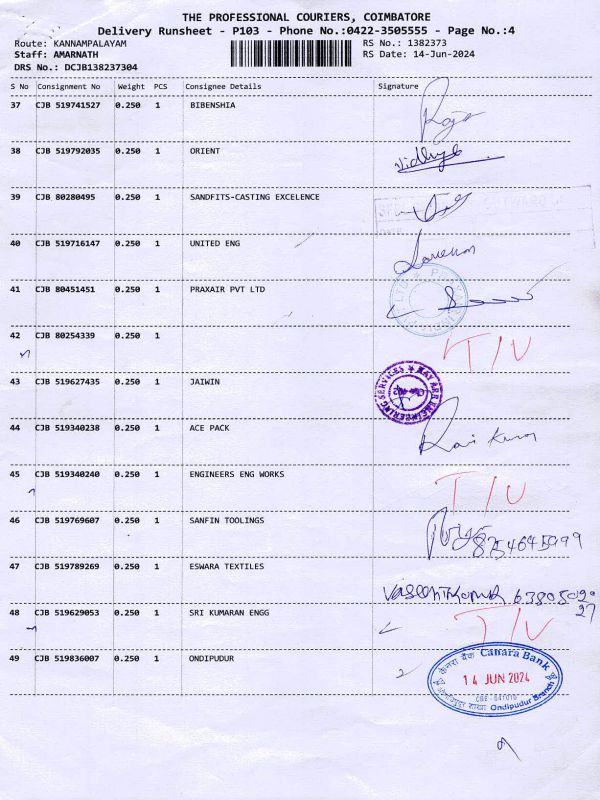 THE PROFESSIONAL COURIERS, COIMBATORE
Delivery Runsheet - P103 - Phone No.:0422-3505555 - Page No.:4
Route: KANNAMPALAYAM RS No.: 1382373
Staff: AMARNATH RS Date: 14-Jun-2024
DRS No.: DCJB138237304
S No Consignment No Weight PCS Consignee Details Signature
37 CJB 519741527 0.250 1 BIBENSHIA Raja
38 CJB 519792035 0.250 1 ORIENT Vidhya
39 CJB 80280495 0.250 1 SANDFITS-CASTING EXCELENCE
40 CJB 519716147 0.250 1 UNITED ENG
41 CJB 80451451 0.250 1 PRAXAIR PVT LTD
42 CJB 80254339 0.250 1 T/U
43 CJB 519627435 0.250 1 JAIWIN KAY ARR ENGINEERING SERVICES
44 CJB 519340238 0.250 1 ACE PACK
45 CJB 519340240 0.250 1 ENGINEERS ENG WORKS T/U
46 CJB 519769607 0.250 1 SANFIN TOOLINGS
47 CJB 519789269 0.250 1 ESWARA TEXTILES
48 CJB 519629053 0.250 1 SRI KUMARAN ENGG T/U
49 CJB 519836007 0.250 1 ONDIPUDUR
केनरा बैंक Canara Bank
14 JUN 2024
Ondipudur Branch